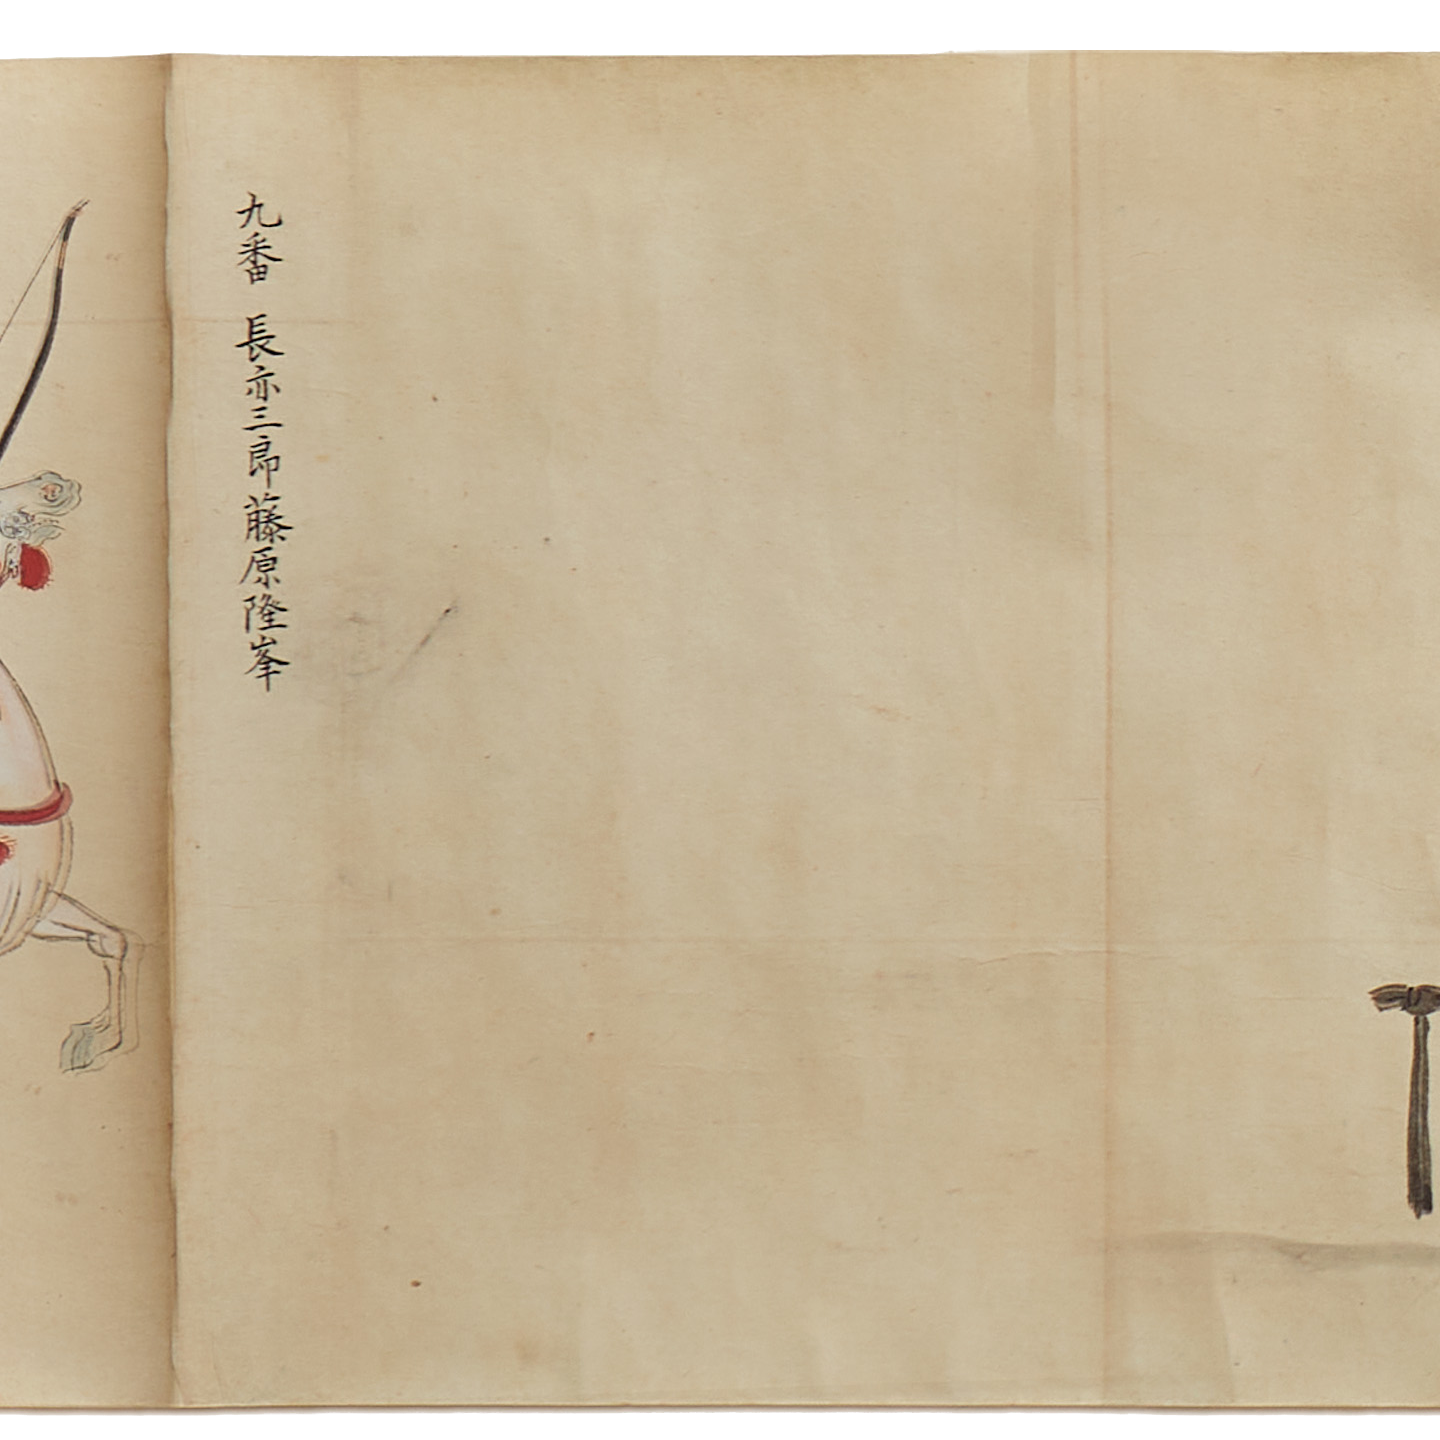 九番 長亦三郎藤原隆峯